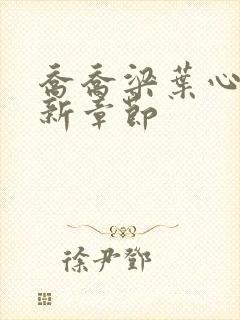 乔乔梁葉心
新章节
徐尹鄧